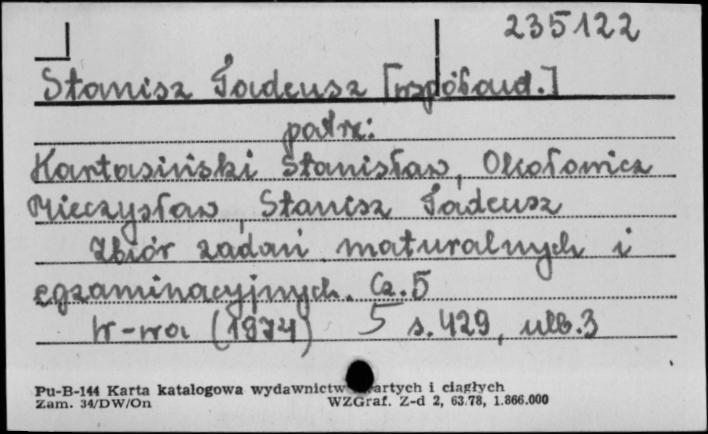 235122
Stanisz Tadeusz [współaut.]
patrz:
Kartasiński Stanisław, Okołowicz
Mieczysław, Stanisz Tadeusz
Zbiór zadań maturalnych i
egzaminacyjnych. Cz. 5
W-wa (1974) 5 s. 429, ulb. 3
Pu-B-144 Karta katalogowa wydawnictw zwartych i ciągłych
Zam. 34/DW/On WZGraf. Z-d 2, 63.78, 1.866.000